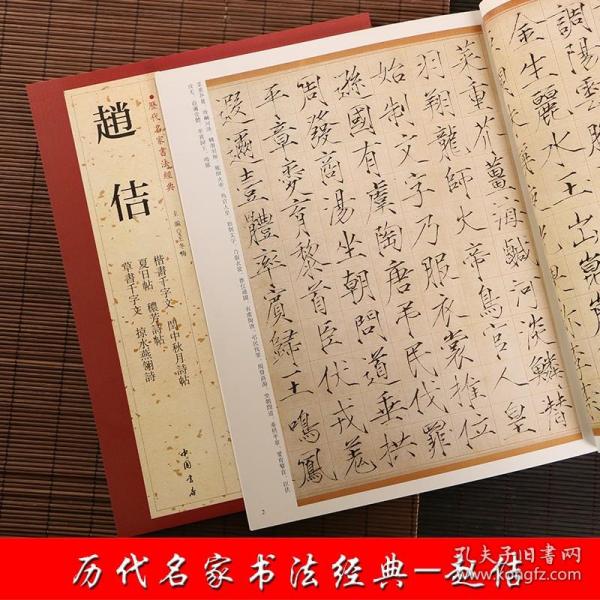 歷代名家書法經典
趙佶
主編 王冬梅
楷書千字文 閏中秋月詩帖
夏日帖 穠芳詩帖
草書千字文 掠水燕翎詩
中国书店
調陽雲
金生麗水玉出崑
菜重芥薑海鹹河淡鱗潛
羽翔龍師火帝鳥官人皇
始制文字乃服衣裳推位
遜國有虞陶唐弔民伐罪
周發商湯坐朝問道垂拱
平章愛育黎首臣伏戎羌
遐邇壹體率賓歸王鳴鳳
2
历代名家书法经典-赵佶
孔夫子旧书网
www.kongfz.com